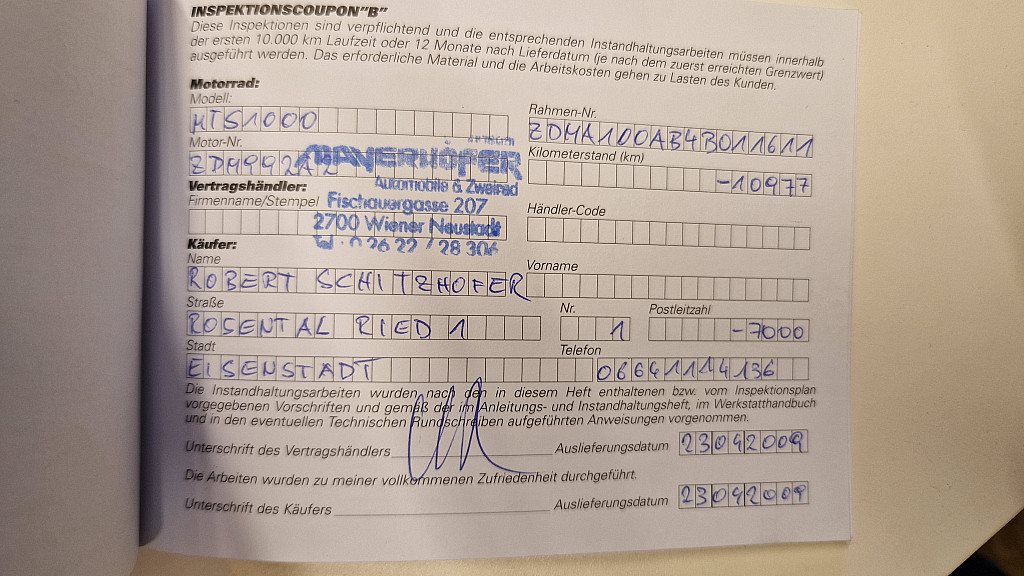 INSPEKTIONSCOUPON"B"
Diese Inspektionen sind verpflichtend und die entsprechenden Instandhaltungsarbeiten müssen innerhalb
der ersten 10.000 km Laufzeit oder 12 Monate nach Lieferdatum (je nach dem zuerst erreichten Grenzwert)
ausgeführt werden. Das erforderliche Material und die Arbeitskosten gehen zu Lasten des Kunden.
Motorrad:
Modell:
MTS1000
Rahmen-Nr.
ZDMA100AB4B011611
Motor-Nr.
ZDM992A2
Kilometerstand (km)
-10977
MAYERHOFER
Automobile & Zweirad
Fischauergasse 207
2700 Wiener Neustadt
02622 / 28 306
Vertragshändler:
Firmenname/Stempel
Händler-Code
Käufer:
Name
ROBERT SCHITZHOFER
Vorname
Straße
ROSENTAL RIED 1
Nr.
1
Postleitzahl
-7000
Stadt
EISENSTADT
Telefon
06641114136
Die Instandhaltungsarbeiten wurden nach den in diesem Heft enthaltenen bzw. vom Inspektionsplan
vorgegebenen Vorschriften und gemäß der im Anleitungs- und Instandhaltungsheft, im Werkstatthandbuch
und in den eventuellen Technischen Rundschreiben aufgeführten Anweisungen vorgenommen.
Unterschrift des Vertragshändlers
Auslieferungsdatum
23042009
Die Arbeiten wurden zu meiner vollkommenen Zufriedenheit durchgeführt.
Unterschrift des Käufers
Auslieferungsdatum
23042009